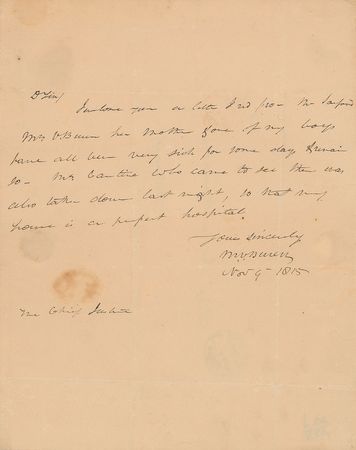 D Sir/
Inclose you a letter I recd from Mr Sanford
Mrs V.Buren her mother & one of my boys
have all been very sick for some days & remain
so - Mr Cantine who came to see them was
also taken down last night, so that my
house is a perfect hospital.
Yours Sincerely
M.V.Buren
Nov 9 - 1815
The Chief Justice